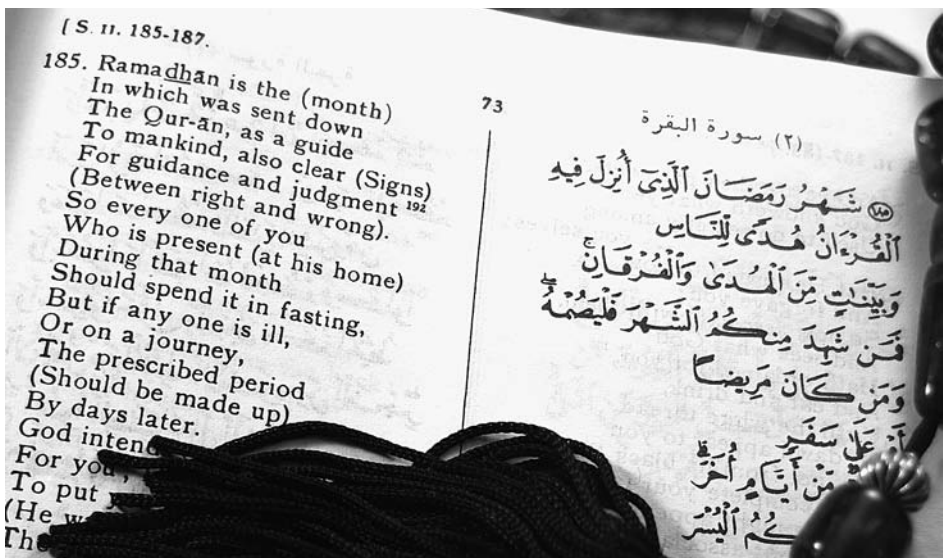 [ S. II. 185-187.
185. Ramadhān is the (month)
In which was sent down
The Qur-ān, as a guide
To mankind, also clear (Signs)
For guidance and judgment 192
(Between right and wrong).
So every one of you
Who is present (at his home)
During that month
Should spend it in fasting,
But if any one is ill,
Or on a journey,
The prescribed period
(Should be made up)
By days later.
God
For you,
To put
(He
73
(٢) سورة البقرة
١٨٥ شَهْرُ رَمَضَانَ ٱلَّذِىٓ أُنزِلَ فِيهِ
ٱلْقُرْءَانُ هُدًى لِّلنَّاسِ
وَبَيِّنَـٰتٍ مِّنَ ٱلْهُدَىٰ وَٱلْفُرْقَانِ ۚ
فَمَن شَهِدَ مِنكُمُ ٱلشَّهْرَ فَلْيَصُمْهُ ۖ
وَمَن كَانَ مَرِيضًا
سَفَرٍ
مِّنْ أَيَّامٍ أُخَرَ ۗ
ٱلْيُسْرَ